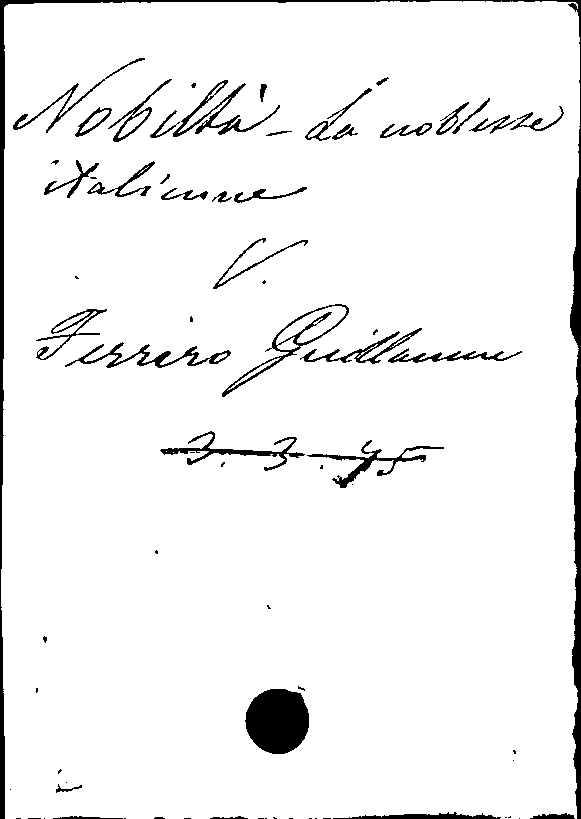 Nobiltà - La noblesse
italienne
V.
Ferrero Guillaume
3. 3. 45